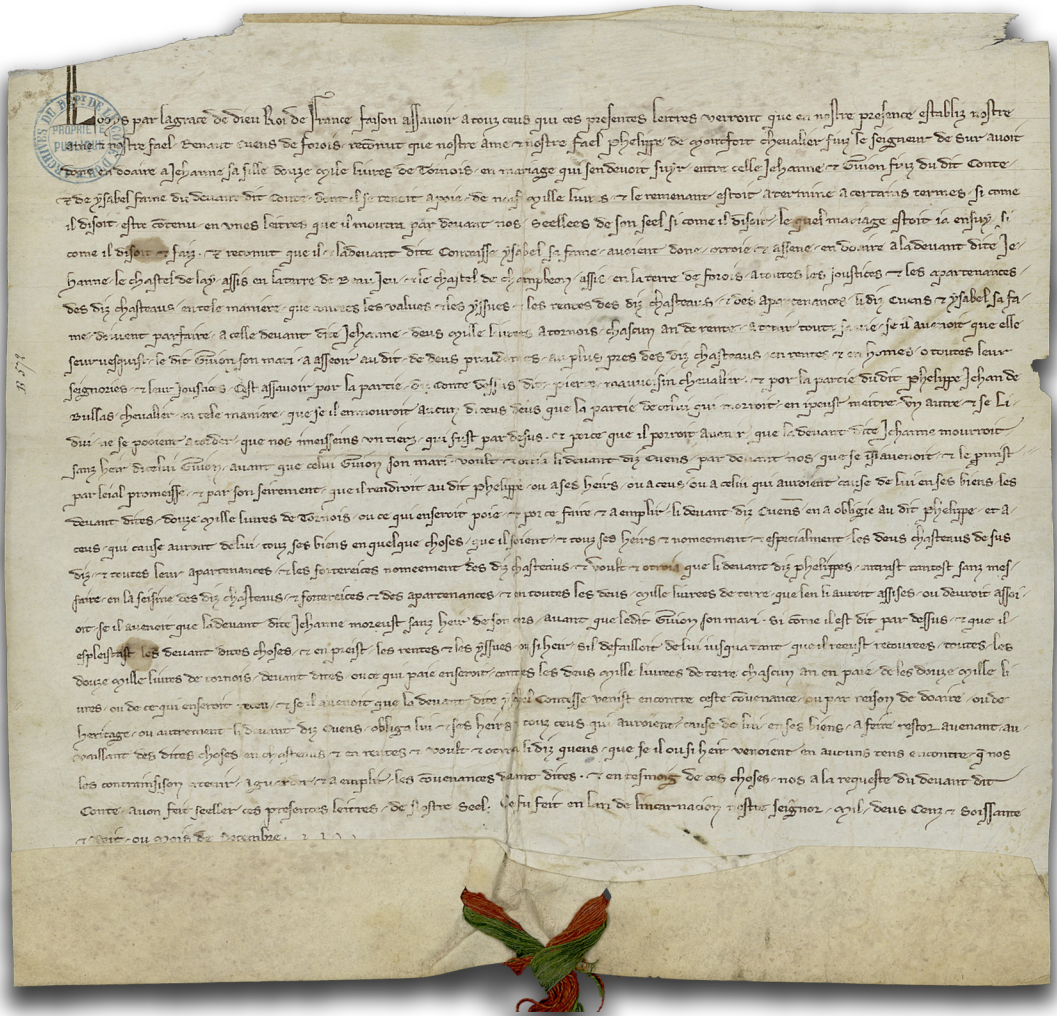 Looys par la grace de dieu Roi de France faison assavoir a touz ceus qui ces presentes lettres verront que en nostre presence establiz nostre
ame & nostre fael Renaut Cuens de forois reconut que nostre ame & nostre fael phelippe de montfort chevalier fiuz le seigneur de Sur avoit
en doaire a Jehanne sa fille douze mile livres de Tornois en mariage qui sen devoit suyr entre celle Jehanne & Guion fiuz du dit Conte
& de ysabel fame du devant dit Conte dont il se tenoit a poie de nuef mille livres & le remenant estoit a termine a certains termes si come
il disoit estre contenu en unes lettres que il moutra par devant nos Seellees de son seel si come il disoit le quel mariage estoit ia ensuy si
come il disoit & faiz & reconut que il & la devant dite Contesse ysabel sa fame avoient done otroie & assene en doaire a la devant dite Je
hanne le chastel de lay assis en la terre de Beau Jeu & le chastel de champleon assis en la terre de forois a toutes les joustices & les apartenances
des diz chasteaus en tele maniere que toutes les values & les yssues les rentes des diz chasteaus & des apartenances li diz Cuens & ysabel sa fa
me doivent parfaire a celle devant dite Jehanne deus mile livrees a tornois chascun an de rente a toute sa vie se il avenoit que elle
seurvesquist le dit Guion son mari a asseoir au dit de deus preudommes au plus pres des diz chasteaus en rentes & en homes o toutes leur
seignories & leur joustices Cest assavoir por la partie dou Conte dessus dit pierre mauvoisin chevalier & por la partie du dit phelippe Jehan de
Bullas chevalier en tele maniere que se il en mouroit aucun diceus deus que la partie de celui qui morroit en ipeust meitre un autre & se li
dui ne se pooient acorder que nos imeisseins un tierz qui fust par desus & porce que il porroit avenir que la devant dite Jehanne mourroit
sanz heir dicelui Guion avant que celui Guion son mari voult & otroia li devant diz Cuens par devant nos que se il avenoit & le promist
par leial promesse & par son seirement que il rendroit au dit phelippe ou a ses heirs ou a ceus ou a celui qui auroient cause de lui en ses biens les
devant dites douze mille livres de Tornois ou ce qui en seroit poie & por ce faire & a emplir li devant diz Cuens en a obligie au dit phelippe et a
ceus qui cause auroit de lui touz ses biens en quelque choses que il soient & touz ses heirs & nomeement & especialment les deus chasteaus de sus
diz & toutes leur apartenances & les fortereices nomeement des diz chasteaus & voult & otroia que li devant diz phelippes tantost sanz mes
faire en la seisine des diz chasteaus & fortereices & des apartenances & en toutes les deus mille livrees de terre que len li auroit assises ou devroit assoi
oit se il avenoit que la devant dite Jehanne moreust sanz heir de son cors avant que ledit Guion son mari si come il est dit par dessus & que il
espleitast les devant dites choses & en preist les rentes & les yssues ou si heir sil defailloit de lui iusqua tant que il eeust recovrees toutes les
douze mille livres de tornois devant dites ou ce qui paie en seroit contes les deus mille livrees de terre chascun an en paie de les douze mille li
vres ou de ce qui en seroit receu & se il avenoit que la devant dite Contesse venist encontre ceste covenance ou par reison de doaire ou de
heritage ou autrement li devant diz Cuens obliga lui & ses heirs & touz ceus qui auroient cause de lui en ses biens a feire restor avenant au
vaillant des dites choses en chasteaus & en rentes & voult & otroia li diz quens que se il ou si heir venoient en aucuns tens encontre que nos
les contrainsison a tenir a garder & a emplir les covenances devant dites & en tesmoig de ces choses nos a la requeste du devant dit
Conte avon feit seeller ces presentes lettres de nostre Seel. Ce fu feit en lan de lincarnacion nostre seignor Mil deus Cenz & Soissante
& Wit ou mois de Decembre
PROPRIETE
PUBLIQUE